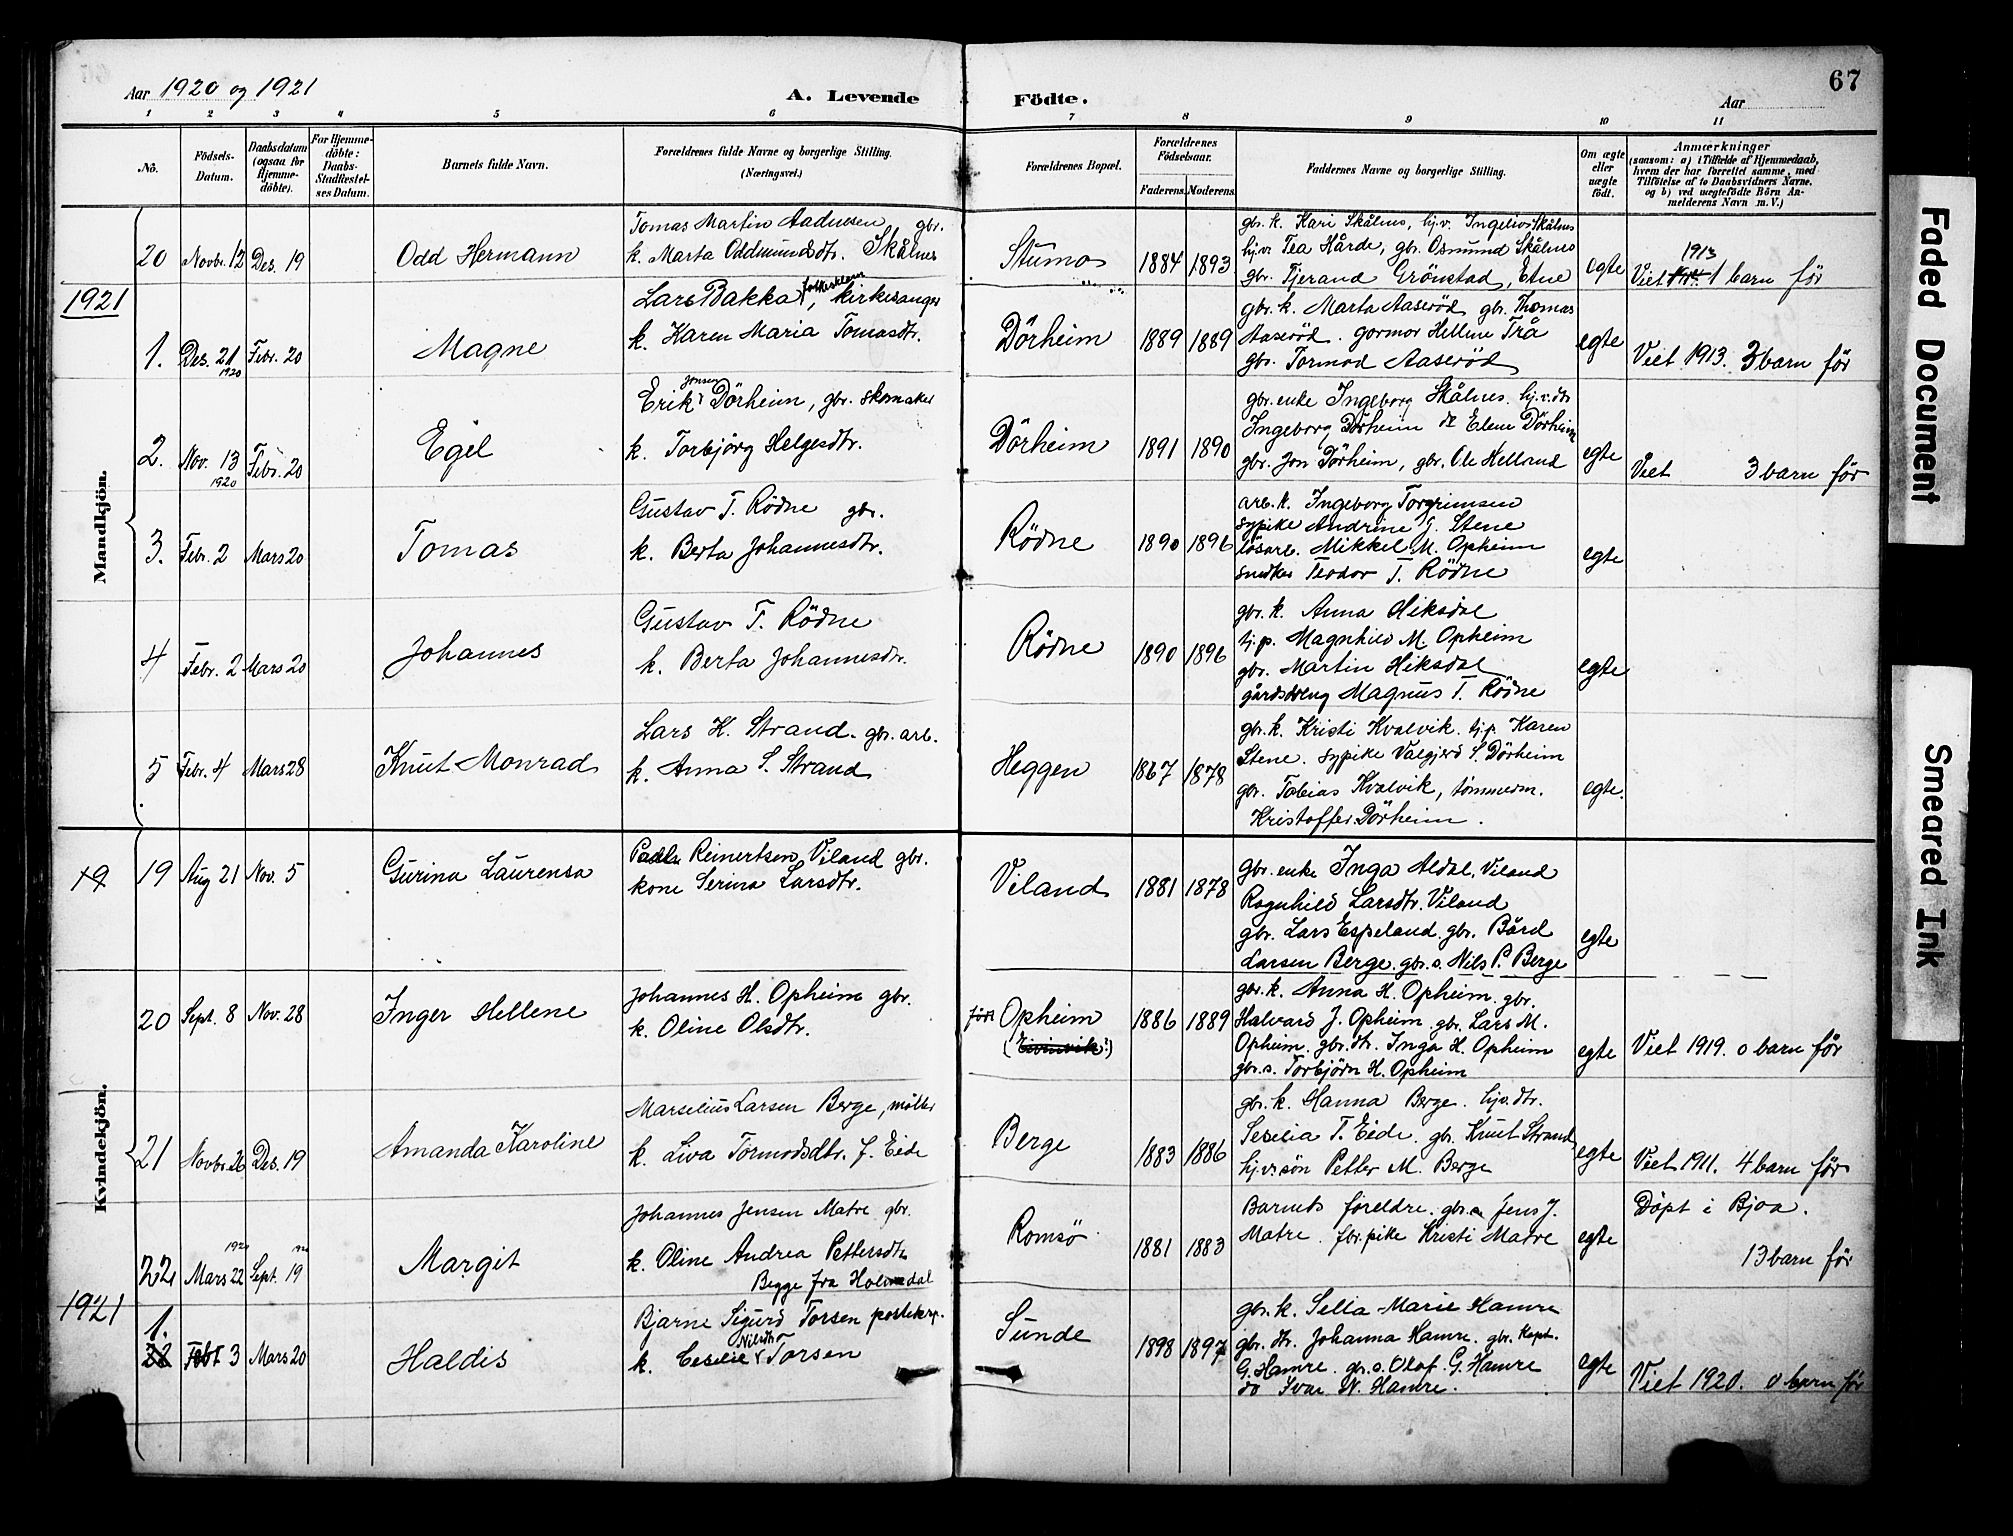 Aar 1920 og 1921
A. Levende Födte.
Aar
67
1 2 3 4 5 6 7 8 9 10 11
No.
Födsels-Datum.
Daabsdatum (ogsaa for Hjemme-döbte).
For Hjemme-döbte: Daabs-Stadfæstel-ses Datum.
Barnets fulde Navn.
Forældrenes fulde Navne og borgerlige Stilling.
(Næringsvei.)
Forældrenes Bopæl.
Forældrenes Födselsaar.
Faderens. Moderens.
Faddernes Navne og borgerlige Stilling.
Om ægte eller uægte født.
Anmærkninger
(saasom: a) i Tilfælde af Hjemmedaab, hvem der har forrettet samme, med Tilföielse af to Daabsvidners Navne, og b) ved uægtefödte Börn An-melderens Navn m. V.)
Mandkjön.
20 Novbr. 12 Des. 19 Odd Hermann
Tomas Martin Aadnesen gbr.
k. Marta Oddmundsdtr. Skålnes
Stumo 1884 1893
gbr. k. Kari Skålnes, hj.v. Ingeliv Skålnes
hj.v. Tea Hårde, gbr. Osmund Skålnes
gbr. Tjerand Grönstad, Etne
egte
1913
Viet 1 barn för
1921
1. Des. 21 1920 Febr. 20 Magne
Lars Bakka, kirkesanger
k. Karen Maria Tomasdtr.
Dörheim 1889 1889
gbr. k. Marta Aaseröd gbr. Thomas
Aaseröd. gormor Hellene Trå
gbr. Tormod Aaseröd
egte
Viet 1913. 3 barn för
2. Nov. 13 1920 Febr. 20 Egel
Erik Jonsen Dörheim, gbr. skomaker
k. Torbjörg Helgesdtr.
Dörheim 1891 1890
gbr. enke Ingeborg Skålnes. hj.v. dtr
Ingeborg Dörheim do Elene Dörheim
gbr. Jon Dörheim, gbr. Ole Hellesund
egte
Viet 3 barn för
3. Febr. 2 Mars 20 Tomas
Gustav T. Rödne gbr.
k. Berta Johannesdtr.
Rödne 1890 1896
arb. k. Ingeborg Torgrimsen
sypike Andrine G. Stene
lösarb. Mikkel M. Opheim
snedker Teodor T. Rödne
egte
4 Febr. 2 Mars 20 Johannes
Gustav T. Rödne
k. Berta Johannesdtr.
Rödne 1890 1896
gbr. k. Anna Hiksdal
tj.p. Magnhild M. Opheim
gbr. Martin Hiksdal
gårdsdreng Magnus T. Rödne
egte
5 Febr. 4 Mars 28 Knut Monrad
Lars K. Strand. gbr. arb.
k. Anna S. Strand
Heggen 1867 1878
gbr. k. Kristi Kvalvik. tj.p. Karen
Stene. sypike Valgjerd S. Dörheim
gbr. Tobias Kvalvik, tömmerm.
Kristoffer Dörheim.
egte.
Kvindekjön.
19
19 Aug 21 Nov. 5 Gurina Laurensa
Reinertsen Viland gbr.
kone Serina Larsdtr.
Viland 1881 1878
gbr. enke Inga Aldal, Viland
Ragnhild Larsdtr. Viland
gbr. Lars Espeland. gbr. Bård
Larsen Berge. gbr. s. Nils P. Berge
egte
20 Sept. 8 Nov. 28 Inger Hellene
Johannes H. Opheim gbr.
k. Oline Olsdtr.
Opheim
(Eivinvik!)
1886 1889
gbr. k. Anna H. Opheim. gbr.
Halvard J. Opheim. gbr. Lars M.
Opheim. gbr. dtr. Inga H. Opheim
gbr. s. Torbjörn H. Opheim
egte
Viet 1919. 0 barn för
21 Novbr. 26 Des. 19 Amanda Karoline
Marselius Larsen Berge, möller
k. Liva Tormodsdtr. f. Eide
Berge 1883 1886
gbr. k. Hanna Berge. hj.v. dtr.
Sesilia T. Eide. gbr. Knut Strand
hj.v. sön Petter M. Berge
egte
Viet 1911. 4 barn för
22 Mars 22 1920 Sept. 19 Margit
Johannes Jensen Matre gbr.
k. Oline Andrea Pettersdtr
Begge fra Holmedal
Romsö 1881 1883
Barnets foreldre. gbr. s. Jens J.
Matre. fbr. pike Kristi Matre
egte
Döpt i Bjoa.
13 barn för
1921
1. Febr 3 Mars 20 Haldis
Bjarne Sigurd Torsen
k. Cesilie Nilsdtr Torsen
Sunde 1898 1897
gbr. k. Sella Marie Hamre
gbr. dtr. Johanna Hamre. gbr. Kapt.
G. Hamre. gbr. s. Olaf G. Hamre
do Ivar N. Hamre.
egte
Viet 1920. 0 barn för
Faded Document
Smeared Ink